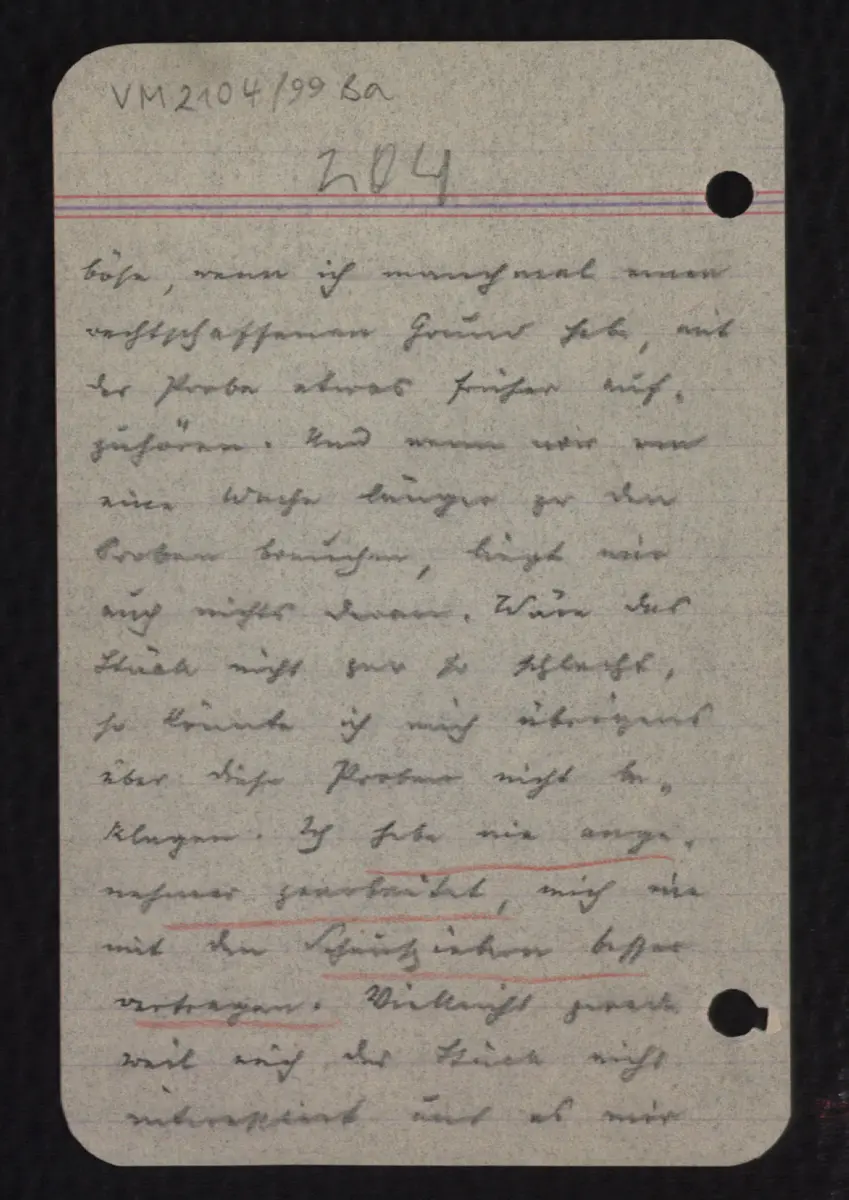 VM 2104/99 Ba
204
böse, wenn ich manchmal einen
rechtschaffenen Grund habe, mit
der Probe etwas früher auf-
zuhören. Und wenn wir um
eine Woche länger zu den
Proben brauchen, liegt mir
auch nichts daran. Wäre das
Stück nicht gar so schlecht,
so könnte ich mich übrigens
über diese Proben nicht be-
klagen. Ich habe nie ange-
nehmer gearbeitet, mich nie
mit den besser
vertragen. Vielleicht gerade
weil mich das Stück nicht
interessiert und es mir